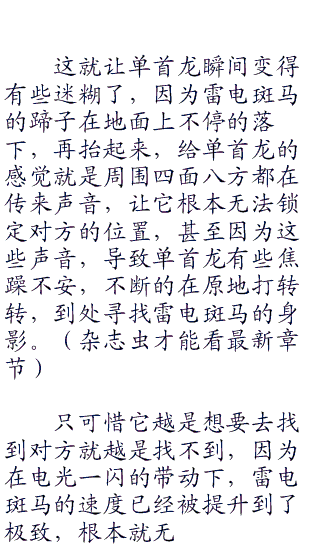 这就让单首龙瞬间变得
有些迷糊了，因为雷电斑马
的蹄子在地面上不停的落
下，再抬起来，给单首龙的
感觉就是周围四面八方都在
传来声音，让它根本无法锁
定对方的位置，甚至因为这
些声音，导致单首龙有些焦
躁不安，不断的在原地打转
转，到处寻找雷电斑马的身
影。（杂志虫才能看最新章
节）
只可惜它越是想要去找
到对方就越是找不到，因为
在电光一闪的带动下，雷电
斑马的速度已经被提升到了
极致，根本就无